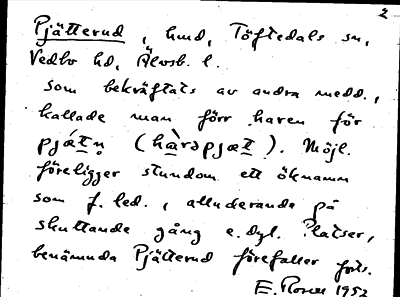 2
Pjätterud, hmd, Töftedals sn,
Vedbo hd, Älvsb. l.
som bekräftats av andra medd.,
kallade man förr haren för
pjátn̥ (hàrəpjæt). Möjl.
föreligger stundom ett öknamn
som f. led., alluderande på
skuttande gång e.dyl. Platser,
benämnda Pjätterud förefaller förts.
E. Rosell 1952